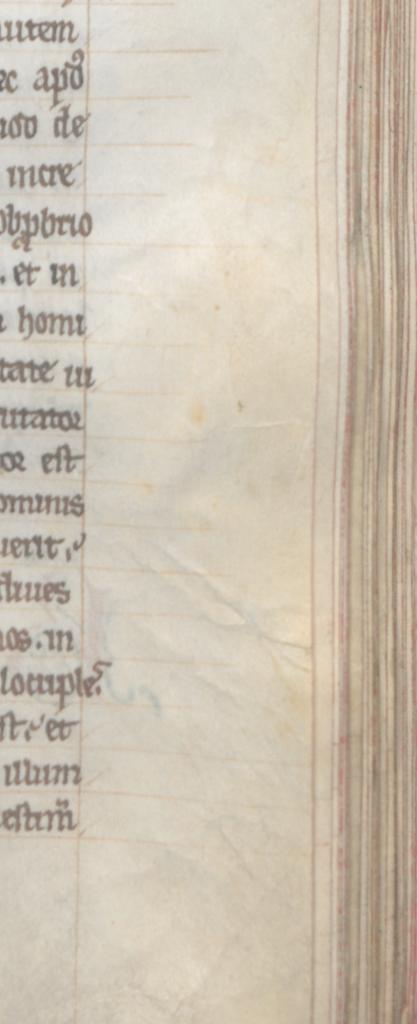 autem
ec apo᷒
uod de
incre
obp̱brio
. et in
a homi
tate iu
utator
or est
ominus
uerit.
fluues
nos. in
locuple
st. et
illum
estim̃